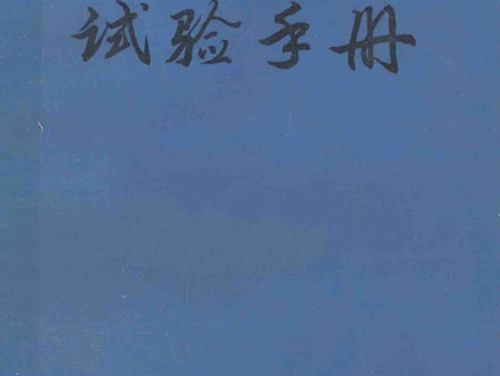 试验手册